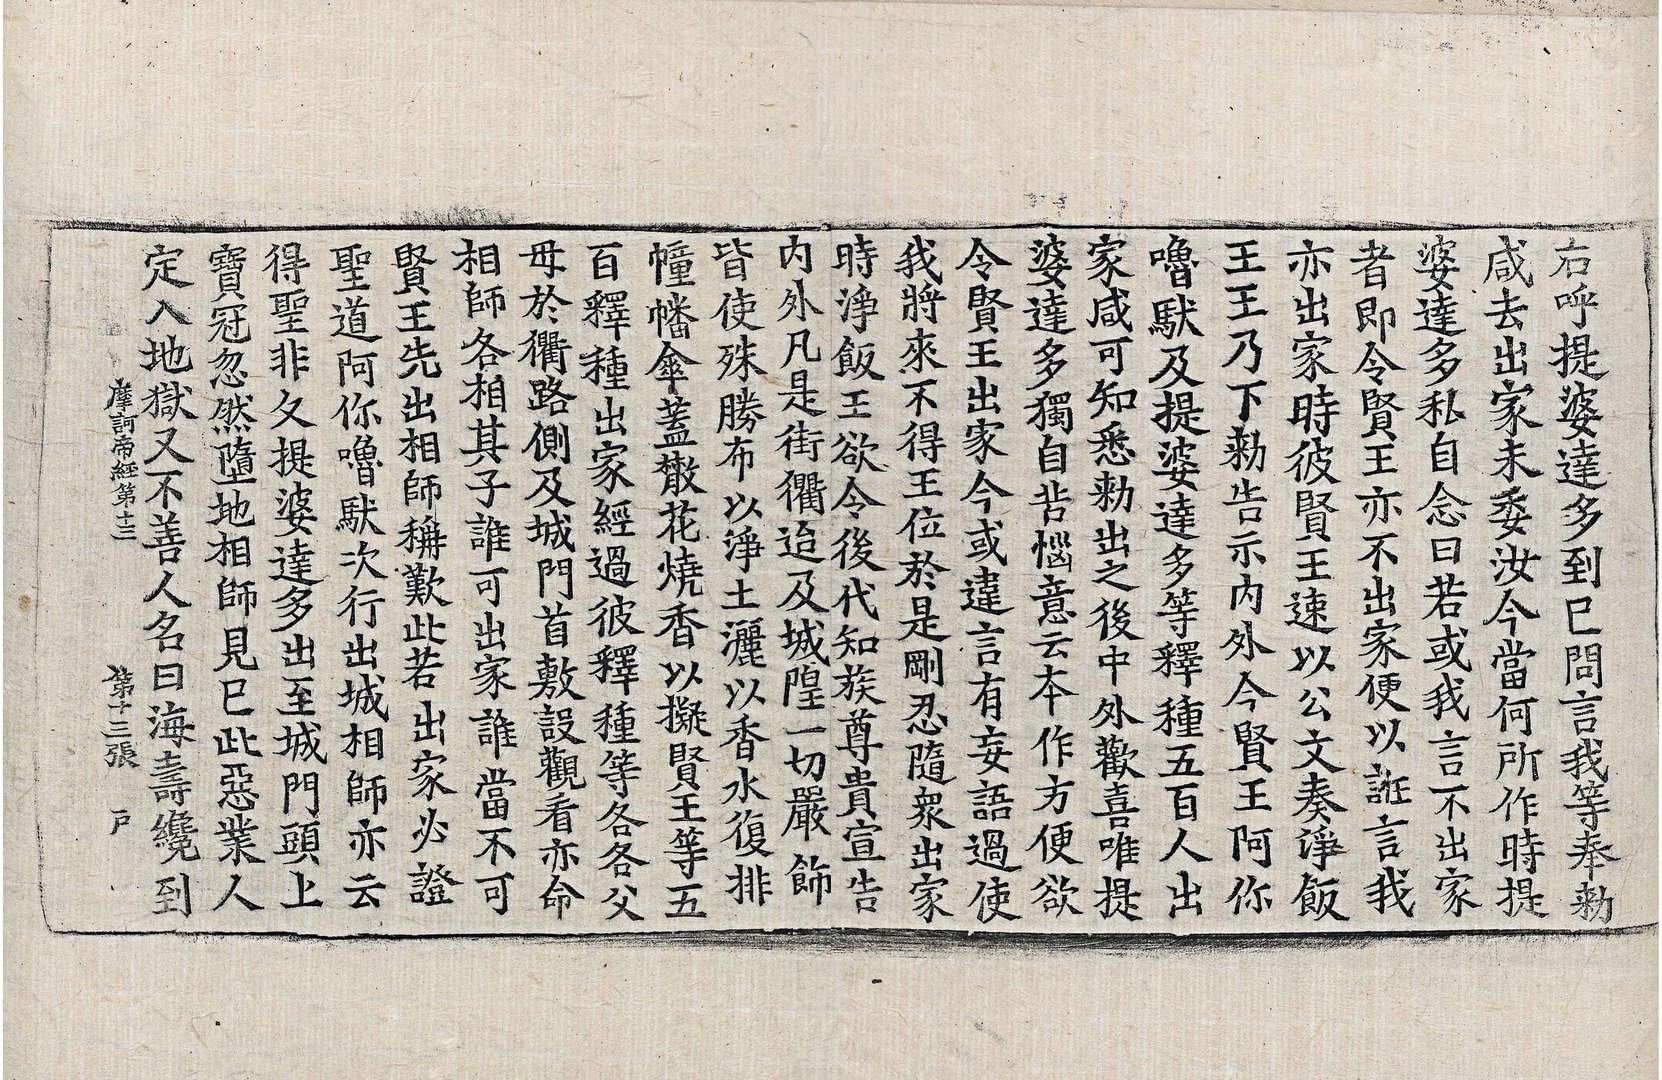 右呼提婆達多到已問言我等奉勑
咸去出家未委汝今當何所作時提
婆達多私自念曰若或我言不出家
者即令賢王亦不出家便以誑言我
亦出家時彼賢王速以公文奏淨飯
王王乃下勑告示內外今賢王阿你
嚕馱及提婆達多等釋種五百人出
家咸可知悉勑出之後中外歡喜唯提
婆達多獨自苦惱意云本作方便欲
令賢王出家今或違言有妄語過使
我將來不得王位於是剛忍隨衆出家
時淨飯王欲令後代知族尊貴宣告
內外凡是街衢迨及城隍一切嚴飾
皆使殊勝布以淨土灑以香水復排
幢幡傘蓋散花燒香以擬賢王等五
百釋種出家經過彼釋種等各各父
母於衢路側及城門首敷設觀看亦命
相師各相其子誰可出家誰當不可
賢王先出相師稱歎此若出家必證
聖道阿你嚕馱次行出城相師亦云
得聖非久提婆達多出至城門頭上
寶冠忽然墮地相師見已此惡業人
定入地獄又不善人名曰海壽纔到
摩訶帝經第十三　第十三張　戶